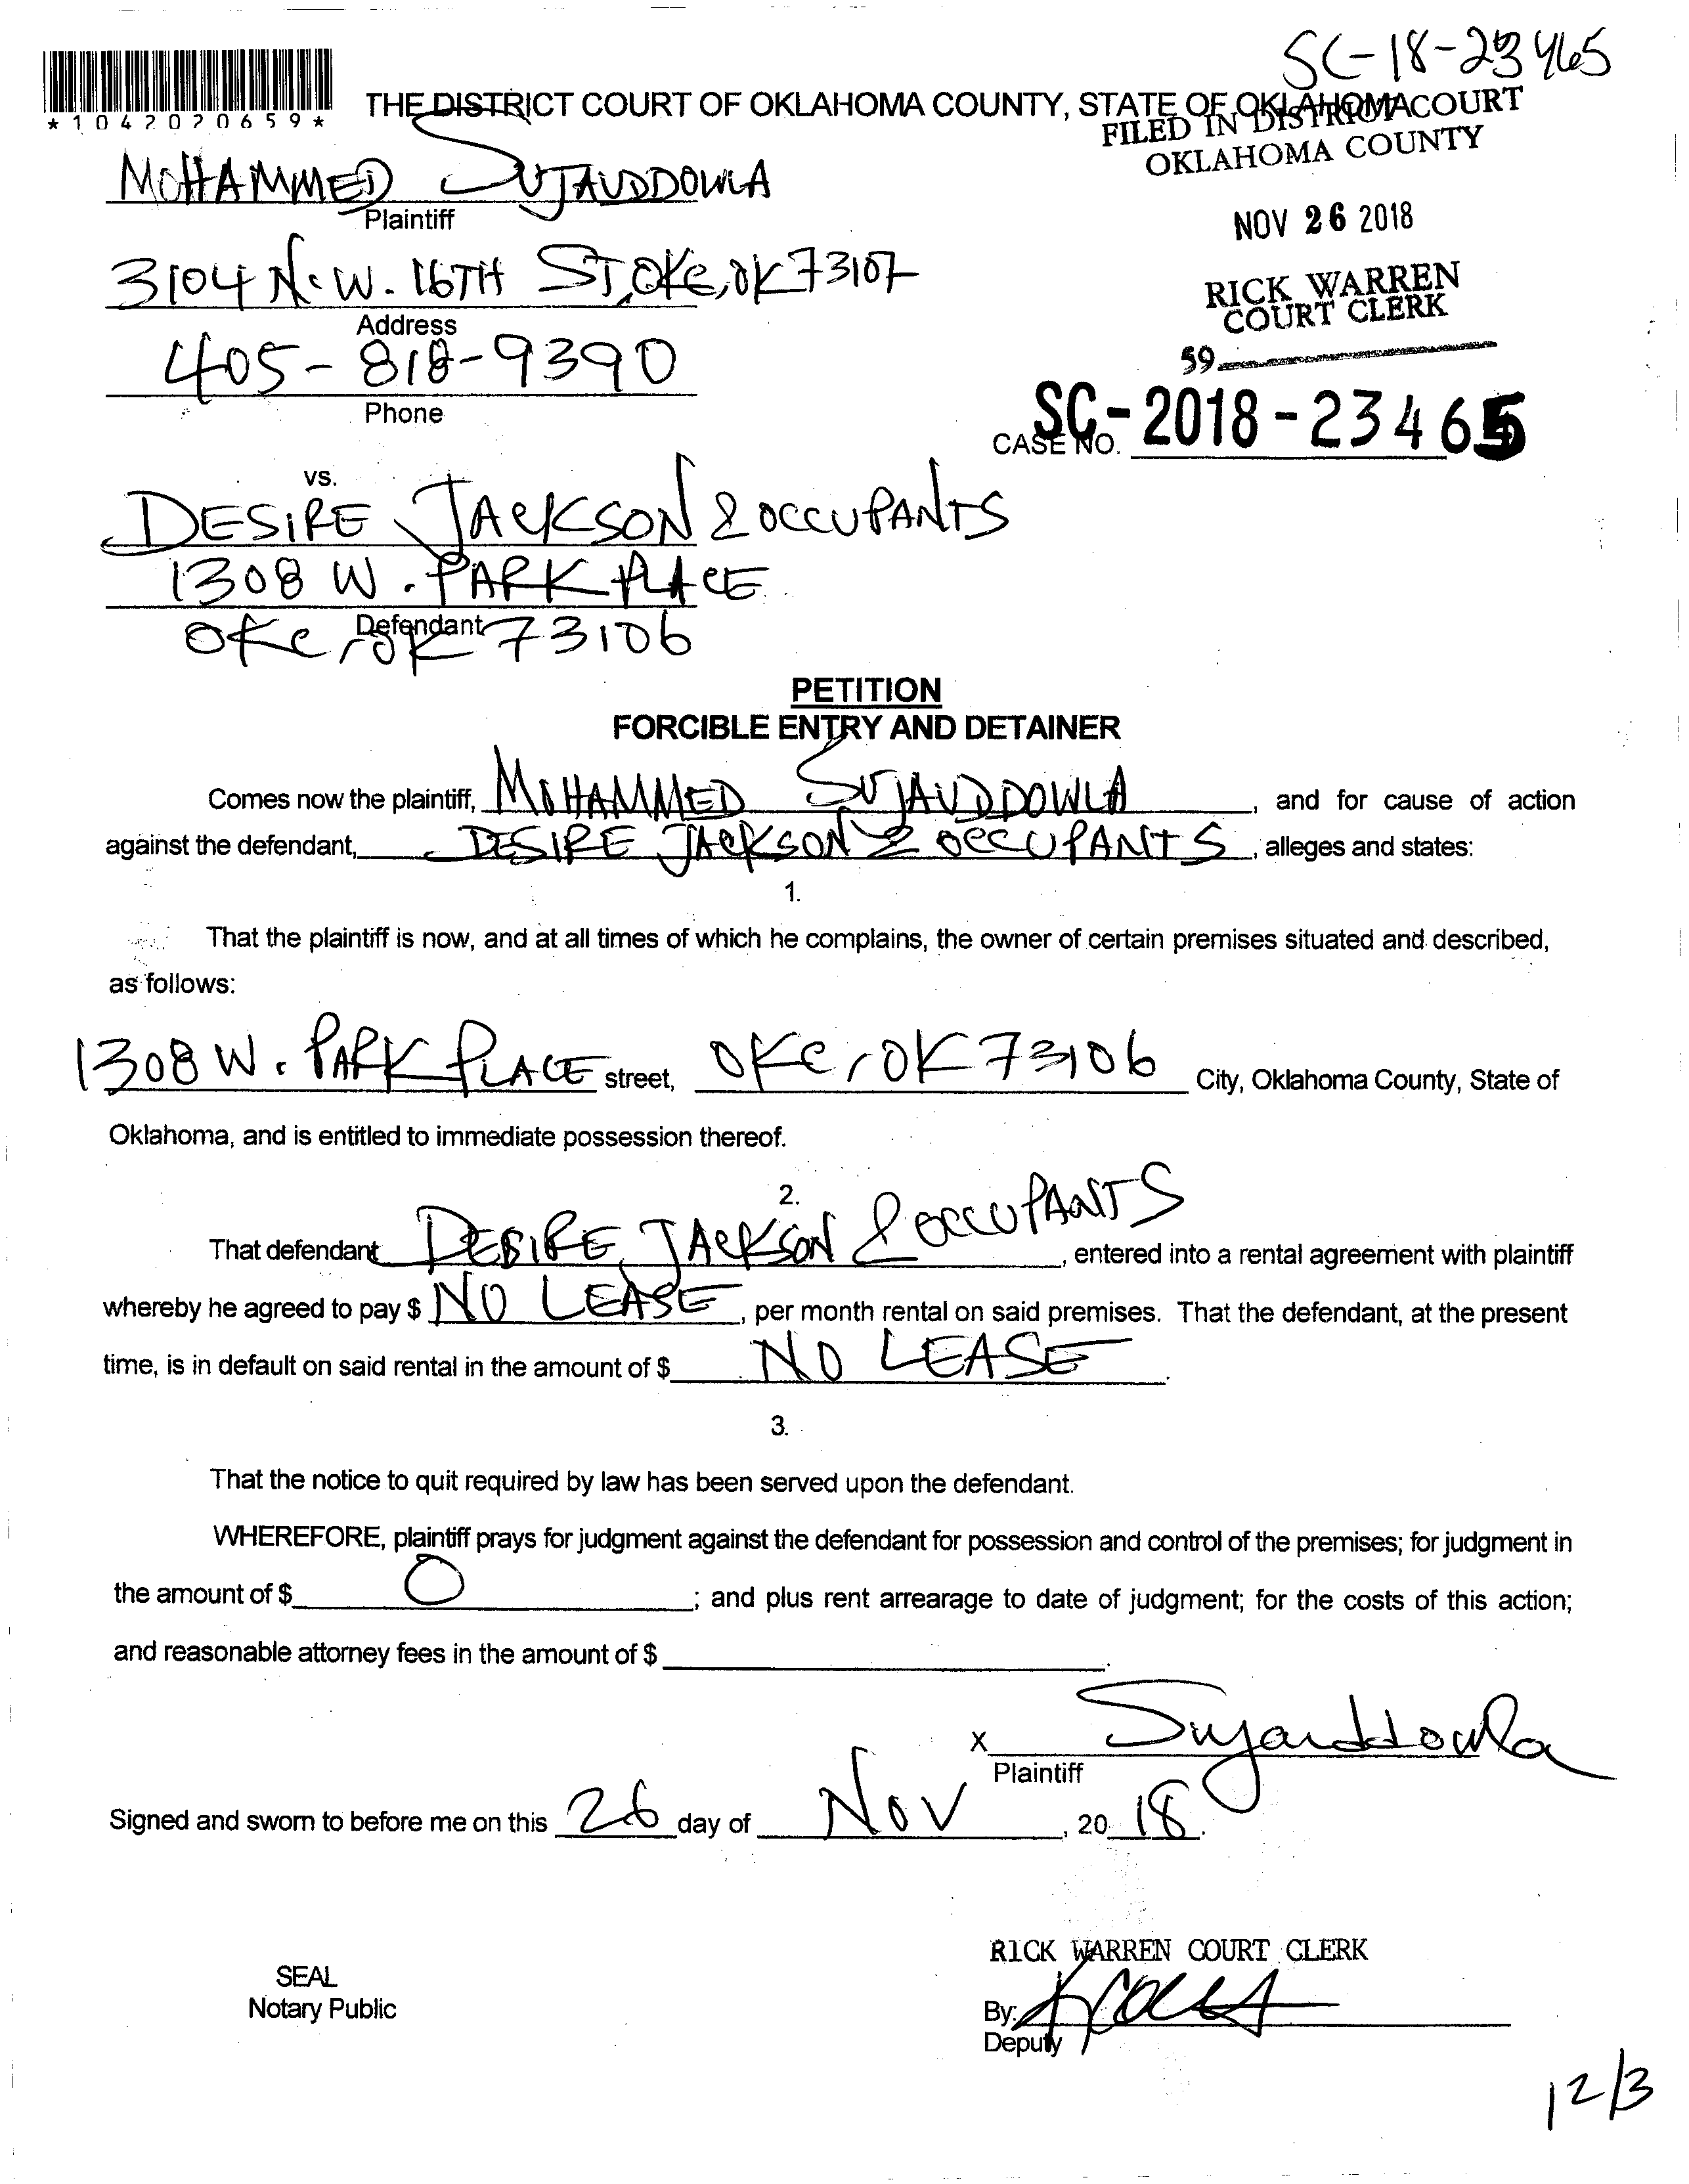 SC-18-23465
*1042020659*
THE DISTRICT COURT OF OKLAHOMA COUNTY, STATE OF OKLAHOMA
FILED IN DISTRICT COURT
OKLAHOMA COUNTY
MOHAMMED SUJAUDDOWLA
Plaintiff
NOV 26 2018
3104 N.W. 16TH ST, OKC, OK 73107
Address
RICK WARREN
COURT CLERK
405-818-9390
Phone
59
CASE NO. SC-2018-23465
vs.
DESIRE JACKSON & OCCUPANTS
1308 W. PARK PLACE
Defendant
OKC, OK 73106
PETITION
FORCIBLE ENTRY AND DETAINER
Comes now the plaintiff, MOHAMMED SUJAUDDOWLA, and for cause of action
against the defendant, DESIRE JACKSON & OCCUPANTS, alleges and states:
1.
That the plaintiff is now, and at all times of which he complains, the owner of certain premises situated and described,
as follows:
1308 W. PARK PLACE street, OKC, OK 73106 City, Oklahoma County, State of
Oklahoma, and is entitled to immediate possession thereof.
2.
That defendant DESIRE JACKSON & OCCUPANTS, entered into a rental agreement with plaintiff
whereby he agreed to pay $ NO LEASE, per month rental on said premises. That the defendant, at the present
time, is in default on said rental in the amount of $ NO LEASE.
3.
That the notice to quit required by law has been served upon the defendant.
WHEREFORE, plaintiff prays for judgment against the defendant for possession and control of the premises; for judgment in
the amount of $ 0; and plus rent arrearage to date of judgment; for the costs of this action;
and reasonable attorney fees in the amount of $ .
X Sujauddowla
Plaintiff
Signed and sworn to before me on this 26 day of Nov, 20 18.
RICK WARREN COURT CLERK
SEAL
Notary Public
By:
Deputy
12/3